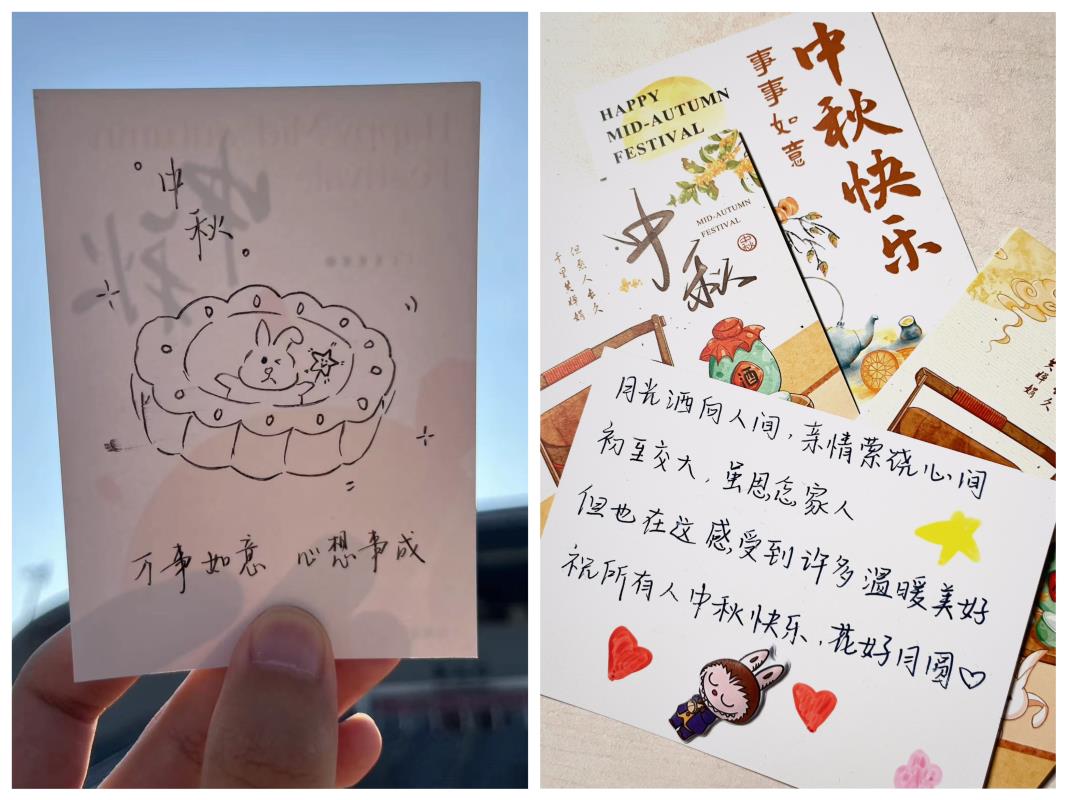 中
秋
万事如意 心想事成
HAPPY
MID-AUTUMN
FESTIVAL
事事如意
中秋快乐
中秋
MID-AUTUMN
FESTIVAL
中秋
但愿人长久
千里共婵娟
酒
月光洒向人间，亲情萦绕心间
初至交大，虽思念家人
但也在这感受到许多温暖美好
祝所有人中秋快乐，花好月圆♡